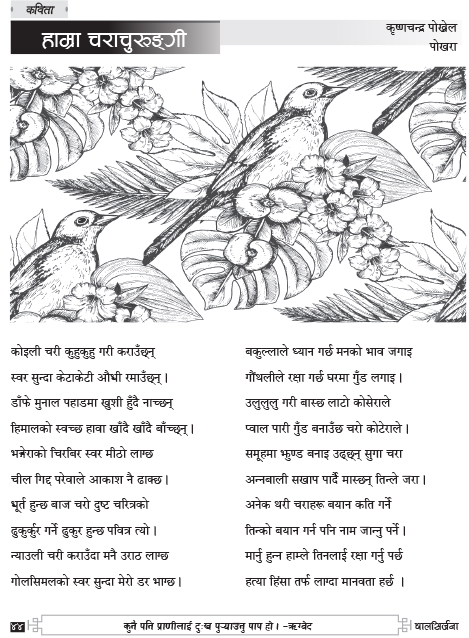 कविता
हाम्रा चराचुरुङ्गी
कृष्णचन्द्र पोख्रेल
पोखरा
कोइली चरी कुहुकुहु गरी कराउँछन्
स्वर सुन्दा केटाकेटी औधी रमाउँछन् ।
डाँफे मुनाल पहाडमा खुशी हुँदै नाच्छन्
हिमालको स्वच्छ हावा खाँदै खाँदै बाँच्छन् ।
भन्नेराको चिरबिर स्वर मीठो लाग्छ
चील गिद्द परेवाले आकाश नै ढाक्छ ।
धूर्त हुन्छ बाज चरो दुष्ट चरित्रको
ढुकुर्कुर गर्ने ढुकुर हुन्छ पवित्र त्यो ।
न्याउली चरी कराउँदा मनै उराठ लाग्छ
गोलसिमलको स्वर सुन्दा मेरो डर भाग्छ ।
बकुल्लाले ध्यान गर्छ मनको भाव जगाइ
गौंथलीले रक्षा गर्छ घरमा गुँड लगाइ ।
उलुलुलु गरी बास्छ लाटो कोसेराले
प्वाल पारी गुँड बनाउँछ चरो कोटेराले ।
समूहमा झुण्ड बनाइ उड्छन् सुगा चरा
अन्नबाली सखाप पार्दै मास्छन् तिन्ले जरा ।
अनेक थरी चराहरू बयान कति गर्ने
तिन्को बयान गर्न पनि नाम जान्नु पर्ने ।
मार्नु हुन्न हाम्ले तिनलाई रक्षा गर्नु पर्छ
हत्या हिंसा तर्फ लाग्दा मानवता हर्छ ।
४४
कुनै पनि प्राणीलाई दुःख पुऱ्याउनु पाप हो । -ऋग्वेद
बालसिर्जना